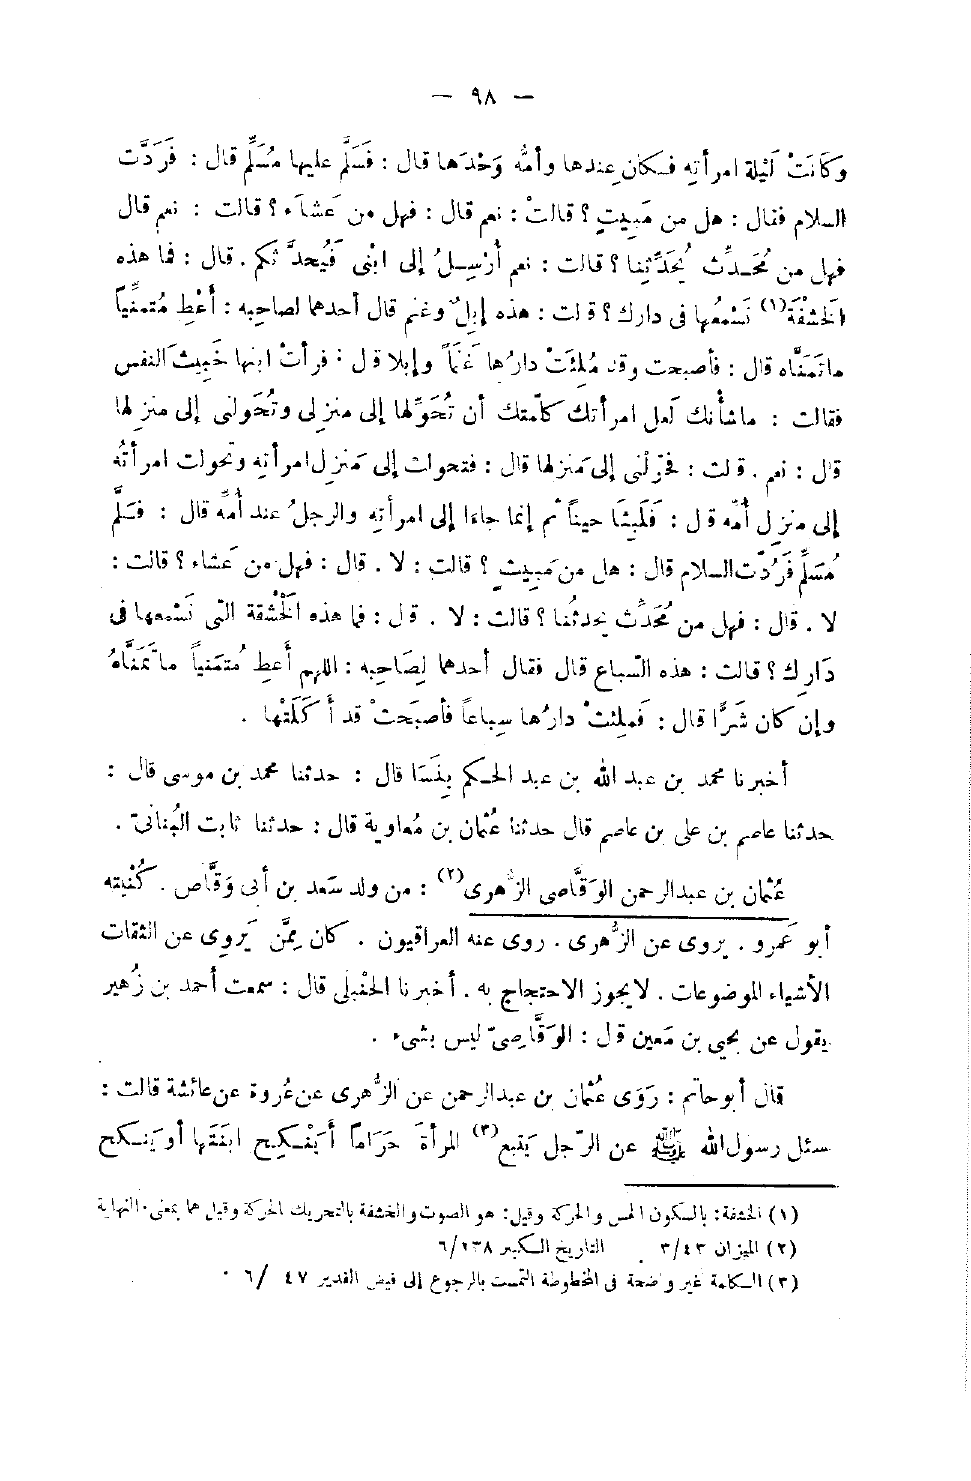 — ٩٨ —
وكَانَتْ لَيْلة امرأتِهِ فكان عِندها وأمُّه وَحْدَها قال : فَسَلَّم عليها مُسَلِّم قال : فَرَدَّت
السلام فقال : هل من مَبِيتٍ ؟ قالتْ : نعم قال : فهل من عَشاَء ؟ قالت : نعم قال
فهل من مُحَدِّث يُحَدِّثنا ؟ قالت : نعم أُرْسِلُ إلى ابنى فَيُحدِّثكم . قال : فما هذه
الخَشْفَة(١) نَسْمَعُها فى دارك ؟ قالت : هذه إبِلٌ وغنم قال أحدهما لصاحِبِه : أَعْطِ مُتمنِّياً
ماتَمَنَّاه قال : فأصبحت وقد مُلِئَتْ دارُها غَنَماً وإبلا قال : فرأتْ ابنها خَبِيث النفس
فقالت : ماشأنك لَعل امرأتك كلّمتك أن تُحَوِّلها إلى منزلى وتُحَولنى إلى منزلها
قال : نعم . قالت : فحَوّلنى إلى مَنزلها قال : فتحولت إلى مَنزل امرأتِه وتحولت امرأتُه
إلى منزِل أُمِّه قال : فَلَبِثَا حيناً ثم إنهما جاءَا إلى امرأتِه والرجلُ عند أُمِّه قال : فسَلَّم
مُسَلِّم فَرَدَّت السلام قال : هل من مَبِيتٍ ؟ قالت : لا . قال : فهل من عَشاء ؟ قالت :
لا . قال : فهل من مُحَدِّث يحدثُنا ؟ قالت : لا . قال : فما هذه الخَشْفة التى نَسْمعها فى
دَارِك ؟ قالت : هذه السِّباع قال فقال أحدهما لِصَاحِبِه : اللهم أَعطِ مُتمَنِّياً ما تَمَنَّاهُ
وإن كان شَرًّا قال : فَملِئتْ دارُها سِباعاً فأصبَحتْ قد أَكَلَتْها .
أخبرنا محمد بن عبد الله بن عبد الحكم بِنَسَا قال : حدثنا محمد بن موسى قال :
حدثنا عاصم بن على بن عاصم قال حدثنا عُثمان بن مُعاوية قال : حدثنا ثابت البُنانىّ .
عُثمان بن عبدالرحمن الوَقَّاصى الزُّهرى(٢) : من ولد سَعد بن أبى وَقَّاص . كُنْيته
أبو عَمرو . يروى عن الزُّهرى . روى عنه العراقيون . كان مِمَّن يَروِى عن الثقات
الأشياء الموضوعات . لايجوز الاحتجاج به . أخبرنا الحَنْبلى قال : سمعت أحمد بن زُهير
يقول عن يحيى بن مَعين قال : الوَقَّاصِىّ ليس بشىء .
قال أبوحاتم : رَوَى عُثمان بن عبدالرحمن عن الزُّهرى عن عُروة عن عائشة قالت :
سئل رسول الله ﷺ عن الرّجل يَتبع(٣) المرأةَ حَرَاماً أَيَنْكِح ابنَتَها أو يَنكح
(١) الخشفة: بالسكون الحس والحركة وقيل: هو الصوت والخشفة بالتحريك الحركة وقيل هما بمعنى. النهاية
(٢) الميزان ٣/٤٣ التاريخ الكبير ٦/٢٣٨
(٣) الكلمة غير واضحة فى المخطوطة التمست بالرجوع إلى فيض القدير ٤٧ /٦ .